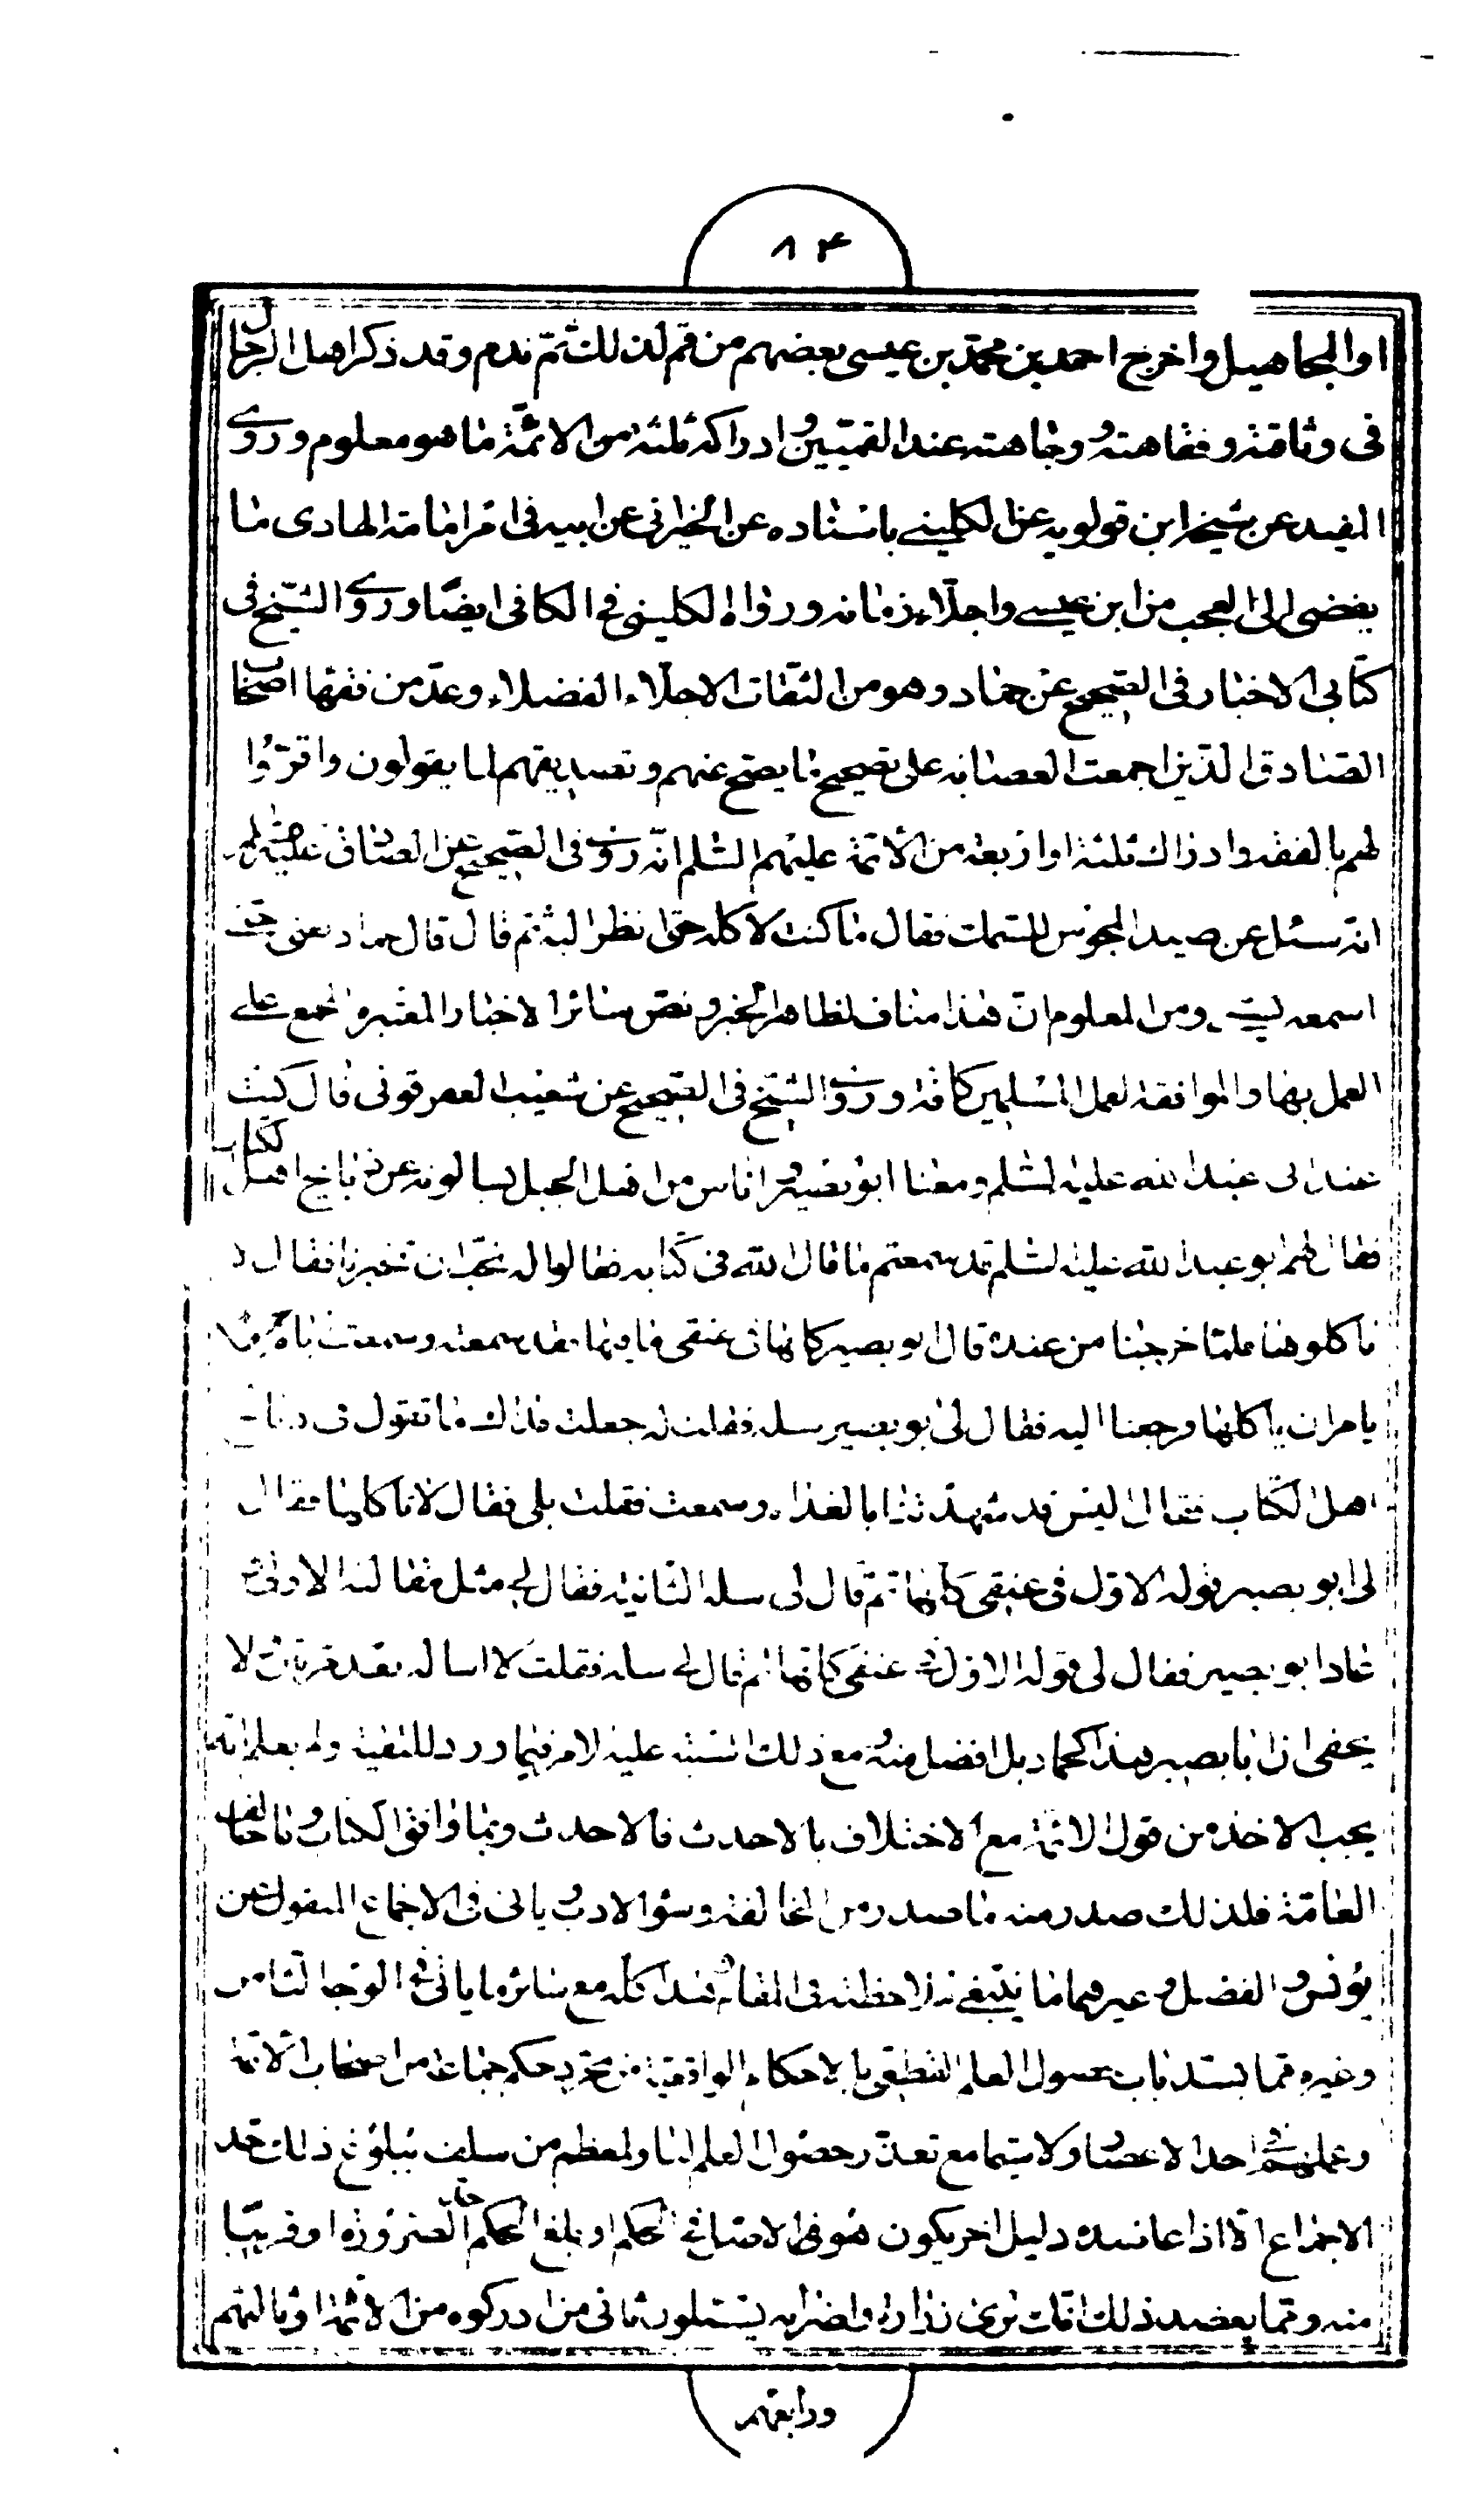 ٨۴
او المجاهيل واخرج احمد بن محمّد بن عيسى بعضهم من قم لذلك ثمّ ندم وقد ذكر اهل الرجال
فى وثاقته وفقاهته ووجاهته عند القميّين وادراكه ثلثة من الائمّة ما هو معلوم وروى
المفيد عن شيخه ابن قولويه عن الكلينى باسناده عن الخيرانى عن ابيه فى امر امامة الهادى ما
يفضى الى العجب من ابن عيسى واجلّاء زمانه ورواه الكلينى فى الكافى ايضًا وروى الشيخ فى
كتابى الاخبار فى الصّحيح عن حماد وهو من الثقات الاجلّاء الفضلاء وعدّ من فقهاء اصحاب
الصّادق الذين اجمعت العصابة على تصحيح ما يصحّ عنهم وتصديقهم لما يقولون واقرّوا
لهم بالفقه وادرك ثلثة او اربعة من الائمّة عليهم السّلم انّه روى فى الصّحيح عن الصّادق
انّه سئل عن صيد المجوس للسّمك فقال ما كنت لاكله حتّى انظر اليه ثم قال قال حماد يعنى حتى
اسمعه ومن المعلوم انّ هذا مناف لظاهر الخبر ونص سائر الاخبار المعتبرة المجمع على
العمل بها والموافقة لعمل المسلمين كافّة وروى الشيخ فى الصّحيح عن شعيب العقرقوفى قال كنت
عند ابى عبد الله عليه السّلم ومعنا ابو بصير واناس من اهل الجبل يسالونه عن ذبائح اهل الكتاب
فقال لهم ابو عبد الله عليه السّلم قد سمعتم ما قال الله فى كتابه فقالوا له نحبّ ان تخبرنا فقال لا
تاكلوها فلمّا خرجنا من عنده قال ابو بصير كلها فى عنقى ما فيها فقد سمعته وسمعت اباه جميعا
يامران باكلها فرجعنا اليه فقال لى ابو بصير سله فقلت له جعلت فداك ما تقول فى ذبائح
اهل الكتاب فقال اليس قد شهدتنا بالغداة وسمعت فقلت بلى فقال لا تاكلها فقال
لى ابو بصير قوله الاول فى عنقى كلها ثمّ قال لى سله الثانية فقال لى مثل مقالته الاولى
عاد ابو بصير فقال لى قوله الاول فى عنقى كلها ثم قال لى سله فقلت لا اساله بعد مرتين لا
يخفى ان ابا بصير هذا كحماد بل افضل منه ومع ذلك اشتبه عليه الامر فيما ورد للتقية ولم يعلم انّه
يجب الاخذ من قول الائمّة مع الاختلاف بالاحدث فالاحدث وبما وافق الكتاب وما خالف
العامّة فلذلك صدر منه ما صدر من المخالفة وسوء الادب وياتى فى الاجماع المنقول عن
يونس والفضل وغيرهما ما ينبغى ملاحظته فى المقام فهذا كلّه مع سائر ما ياتى فى الوجه الثامن
وغيره ممّا يسدّ باب حصول العلم القطعى بالاحكام الواقعية من مجرد حكم جماعة من اصحاب الائمّة
وعملهم فى احد الاعصار ولا سيّما مع تعذر حصول العلم لنا ولمعظم من سلف ببلوغ ذلك حد
الاجماع الّا اذا عاضده دليل اخر يكون هو فى الاصابة الحكم او بلغ الحكم حدّ الضرورة او قريبًا
منه وممّا يعضد ذلك انّك ترى زرارة واضرابه يسئلون ثانى من ادركوه من الائمّة او ثالثهم
ورابعهم